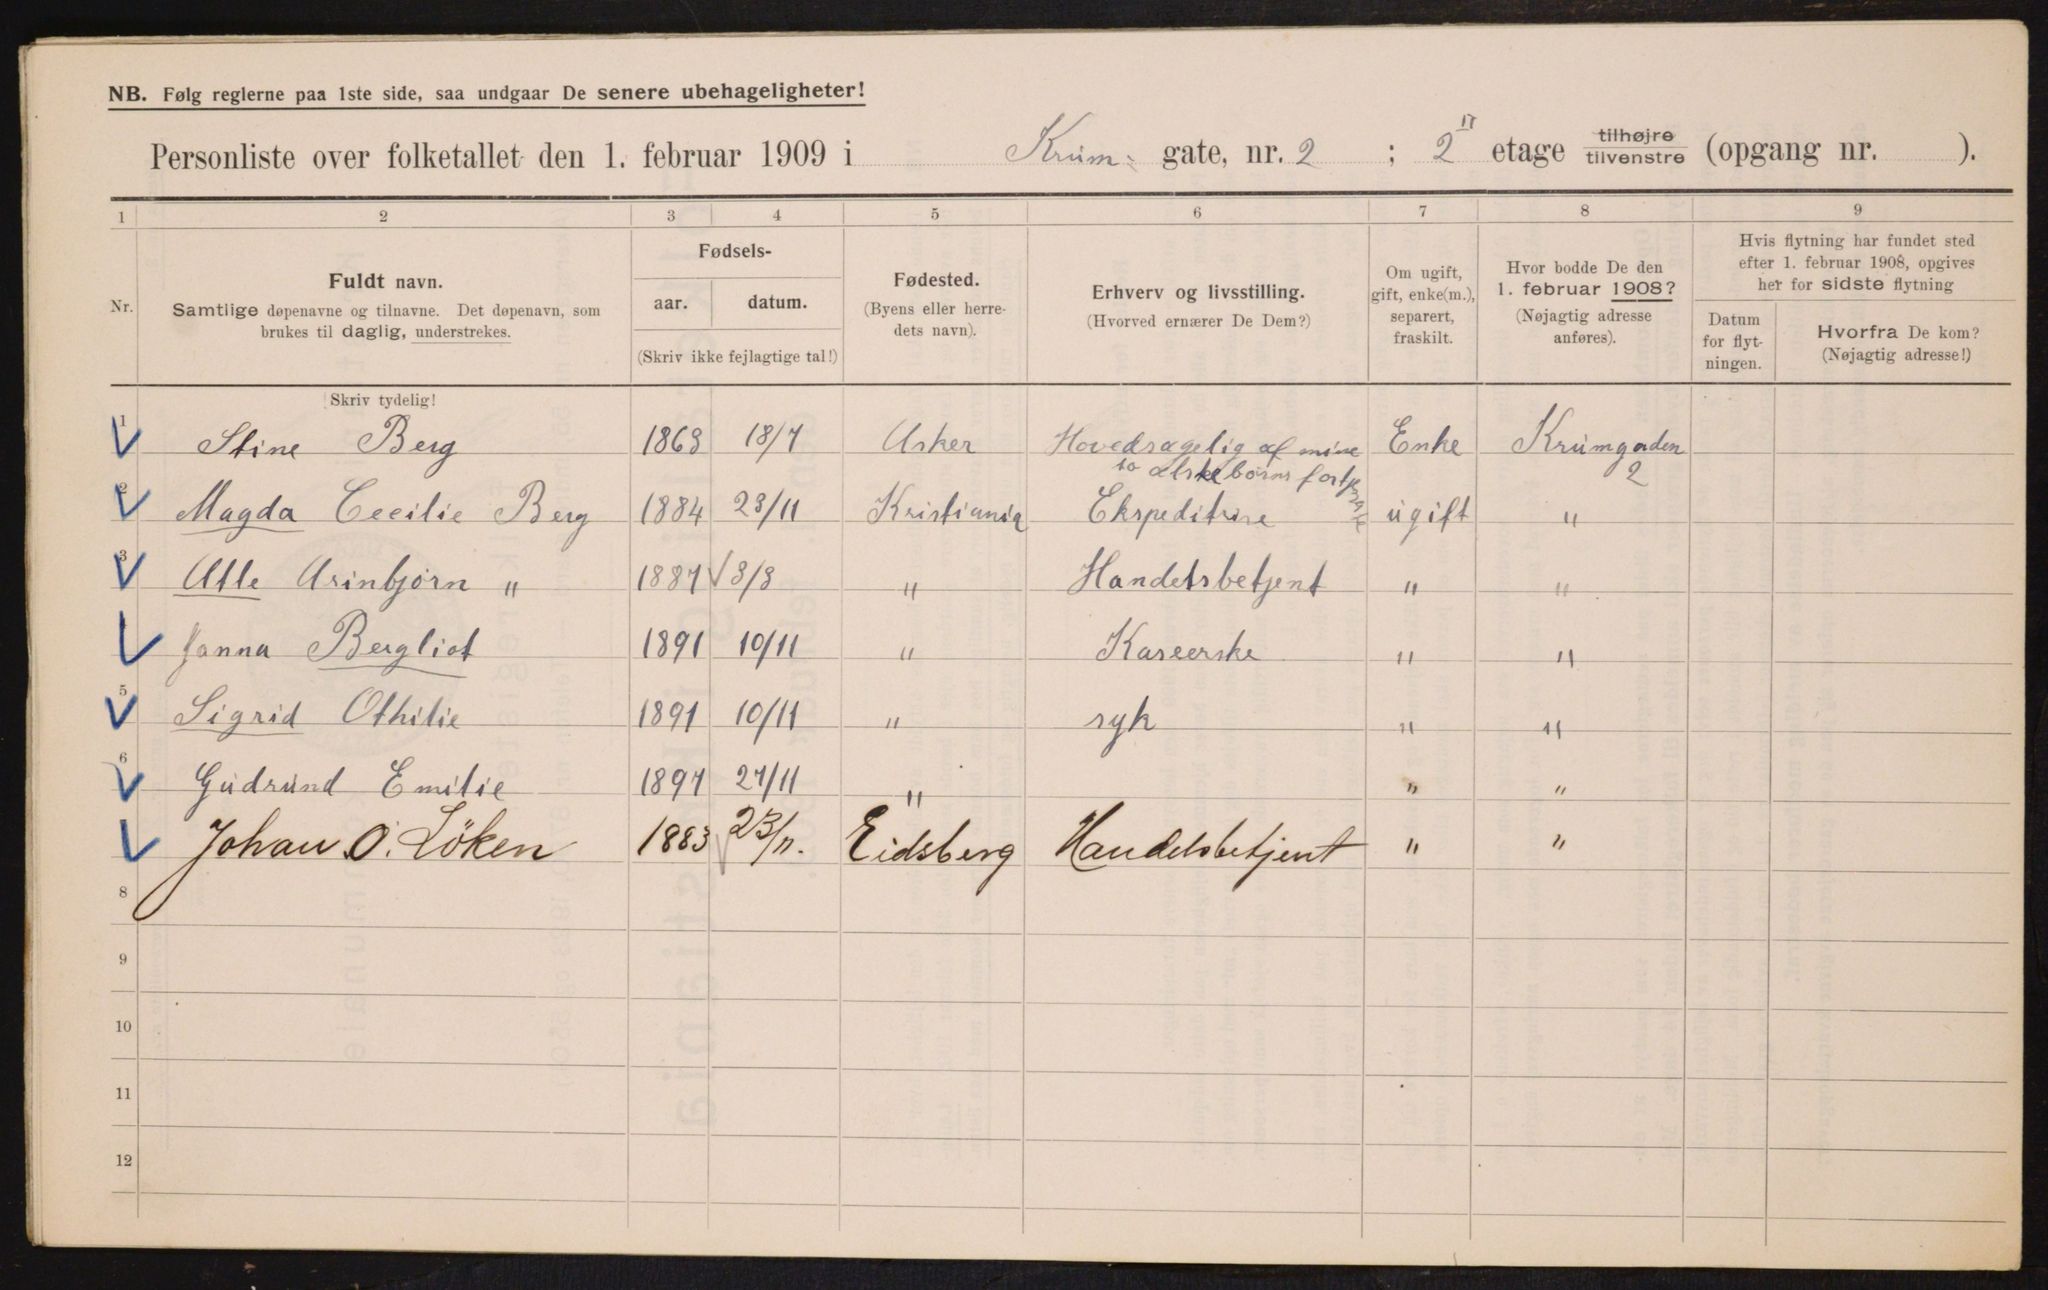 NB. Følg reglerne paa 1ste side, saa undgaar De senere ubehageligheter!
Personliste over folketallet den 1. februar 1909 i Krum- gate, nr. 2 ; 2 etage tilhøjre tilvenstre (opgang nr. ).
1 2 3 4 5 6 7 8 9
Nr.
Fuldt navn.
Samtlige døpenavne og tilnavne. Det døpenavn, som
brukes til daglig, understrekes.
Fødsels-
aar. datum.
(Skriv ikke fejlagtige tal!)
Fødested.
(Byens eller herre-
dets navn).
Erhverv og livsstilling.
(Hvorved ernærer De Dem?)
Om ugift,
gift, enke(m.),
separert,
fraskilt.
Hvor bodde De den
1. februar 1908?
(Nøjagtig adresse
anføres).
Hvis flytning har fundet sted
efter 1. februar 1908, opgives
her for sidste flytning
Datum
for flyt-
ningen.
Hvorfra De kom?
(Nøjagtig adresse!)
Skriv tydelig!
1 Stine Berg 1863 18/7 Asker Hovedsagelig af mine Enke Krumgaden
to børns 2
2 Magda Cecilie Berg 1884 23/11 Kristiania Ekspeditrise ugift "
3 Atle Arinbjørn " 1887 3/3 " Handelsbetjent " "
Janna Bergliot 1891 10/11 " Kaseerske " "
5 Sigrid Othilie 1891 10/11 " syk " "
6 Gudrund Emilie 1897 27/11 " " "
Johan O. Löken 1883 23/11. Eidsberg Handelsbetjent " "
8
9
10
11
12